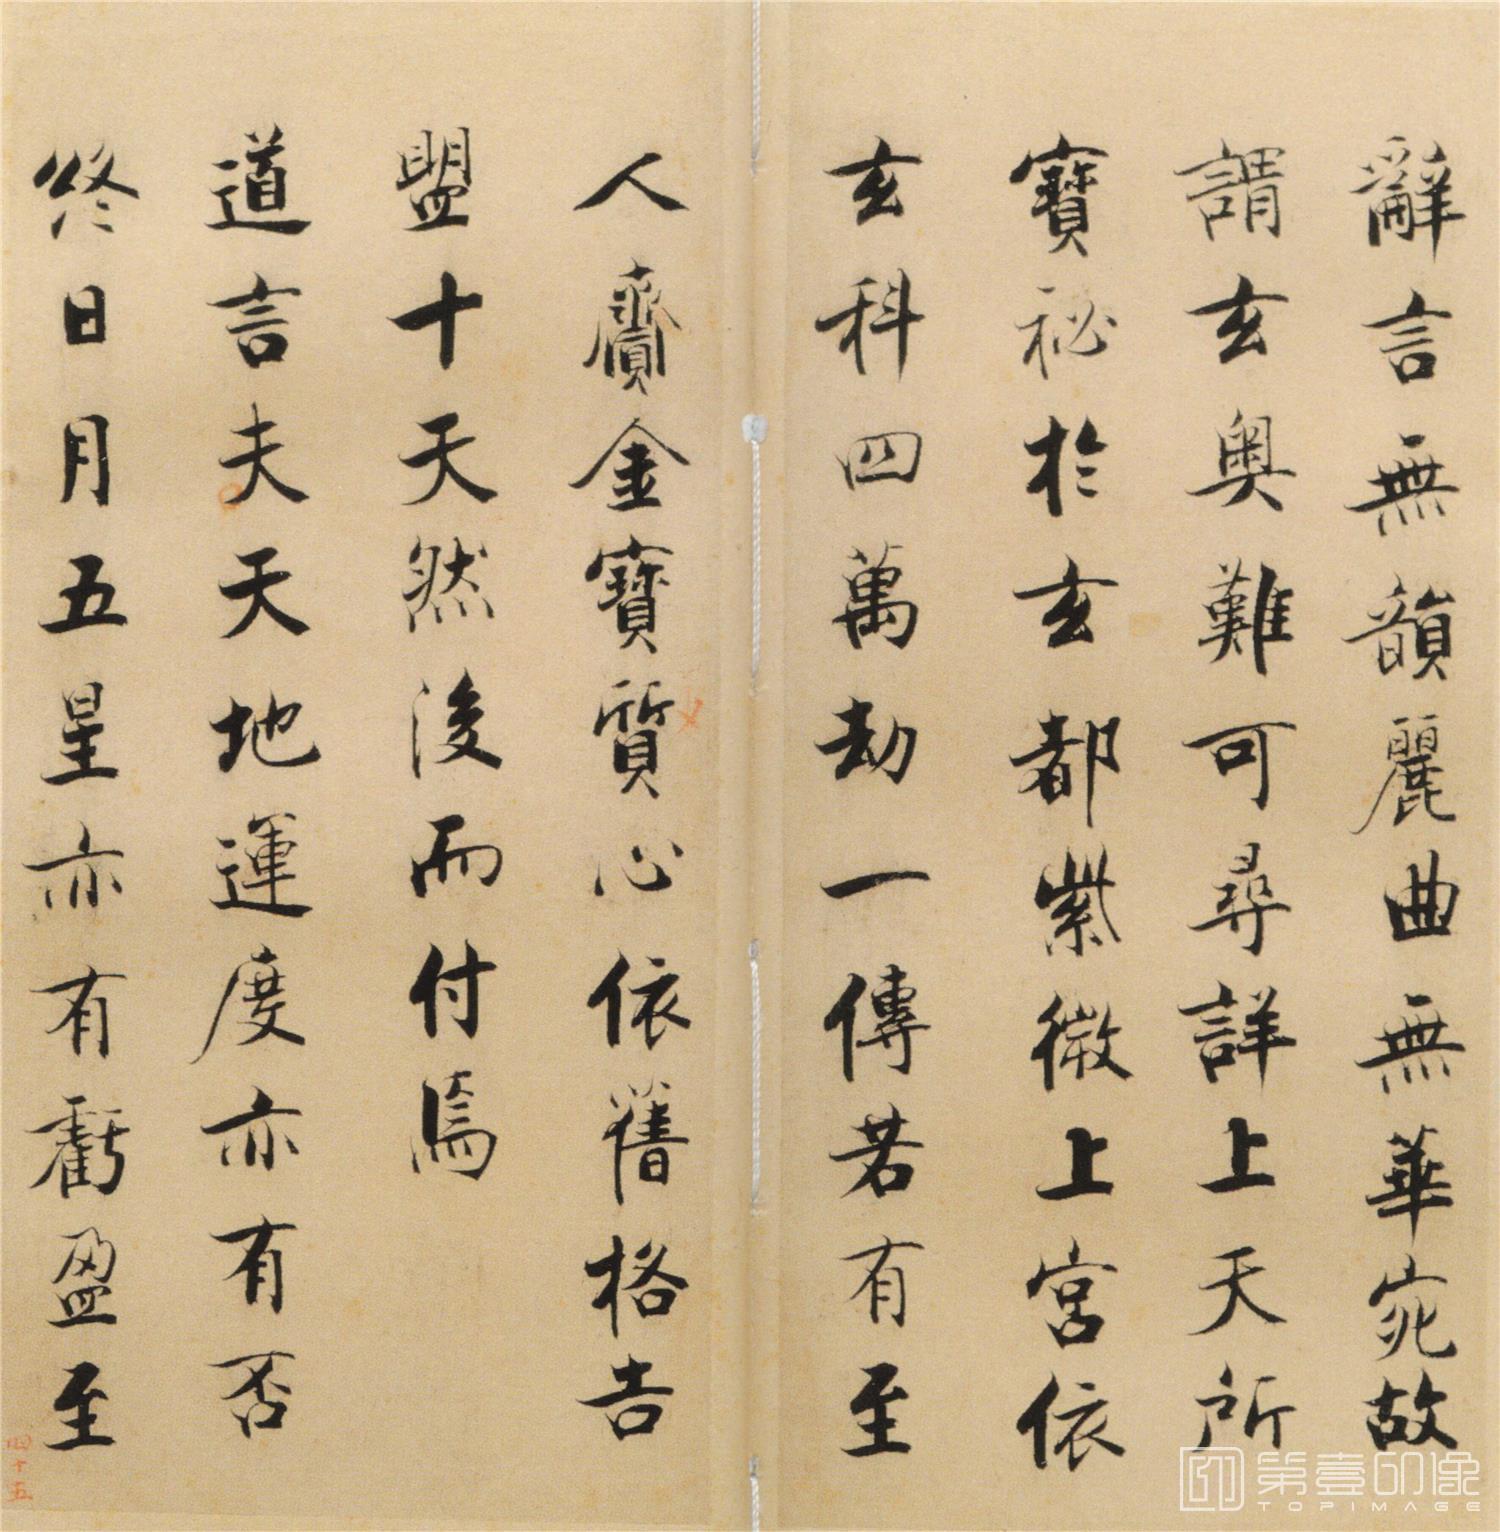 辭言無韻麗曲無華宛故
謂玄奧難可尋詳上天所
寶祕於玄都紫微上宮依
玄科四萬劫一傳若有至
人齎金寶質心依舊格告
盟十天然後而付焉
道言夫天地運度亦有否
終日月五星亦有虧盈至
四十五
第壹印像
TOPIMAGE